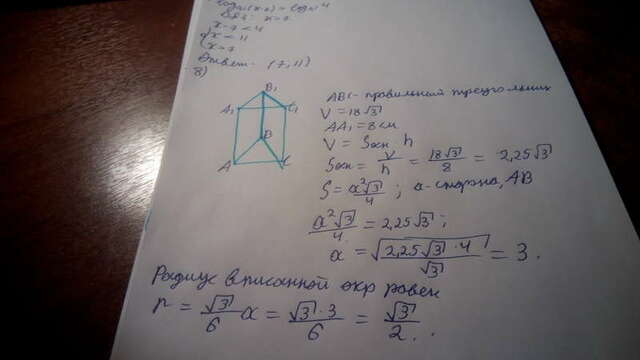 x-7 < 4
x < 11
x > 7
Ответ: (7, 11)
8)
B₁
A₁
C₁
B
A
C
ABC - правильный треугольник
V = 18√3
AA₁ = 8 см
V = Sосн · h
Sосн = V/h = 18√3/8 = 2,25√3
S = a²√3/4 ; a - сторона, AB
a²√3/4 = 2,25√3 ;
a = √(2,25√3 · 4/√3) = 3.
Радиус вписанной окр равен
r = √3/6 a = √3 · 3/6 = √3/2 .